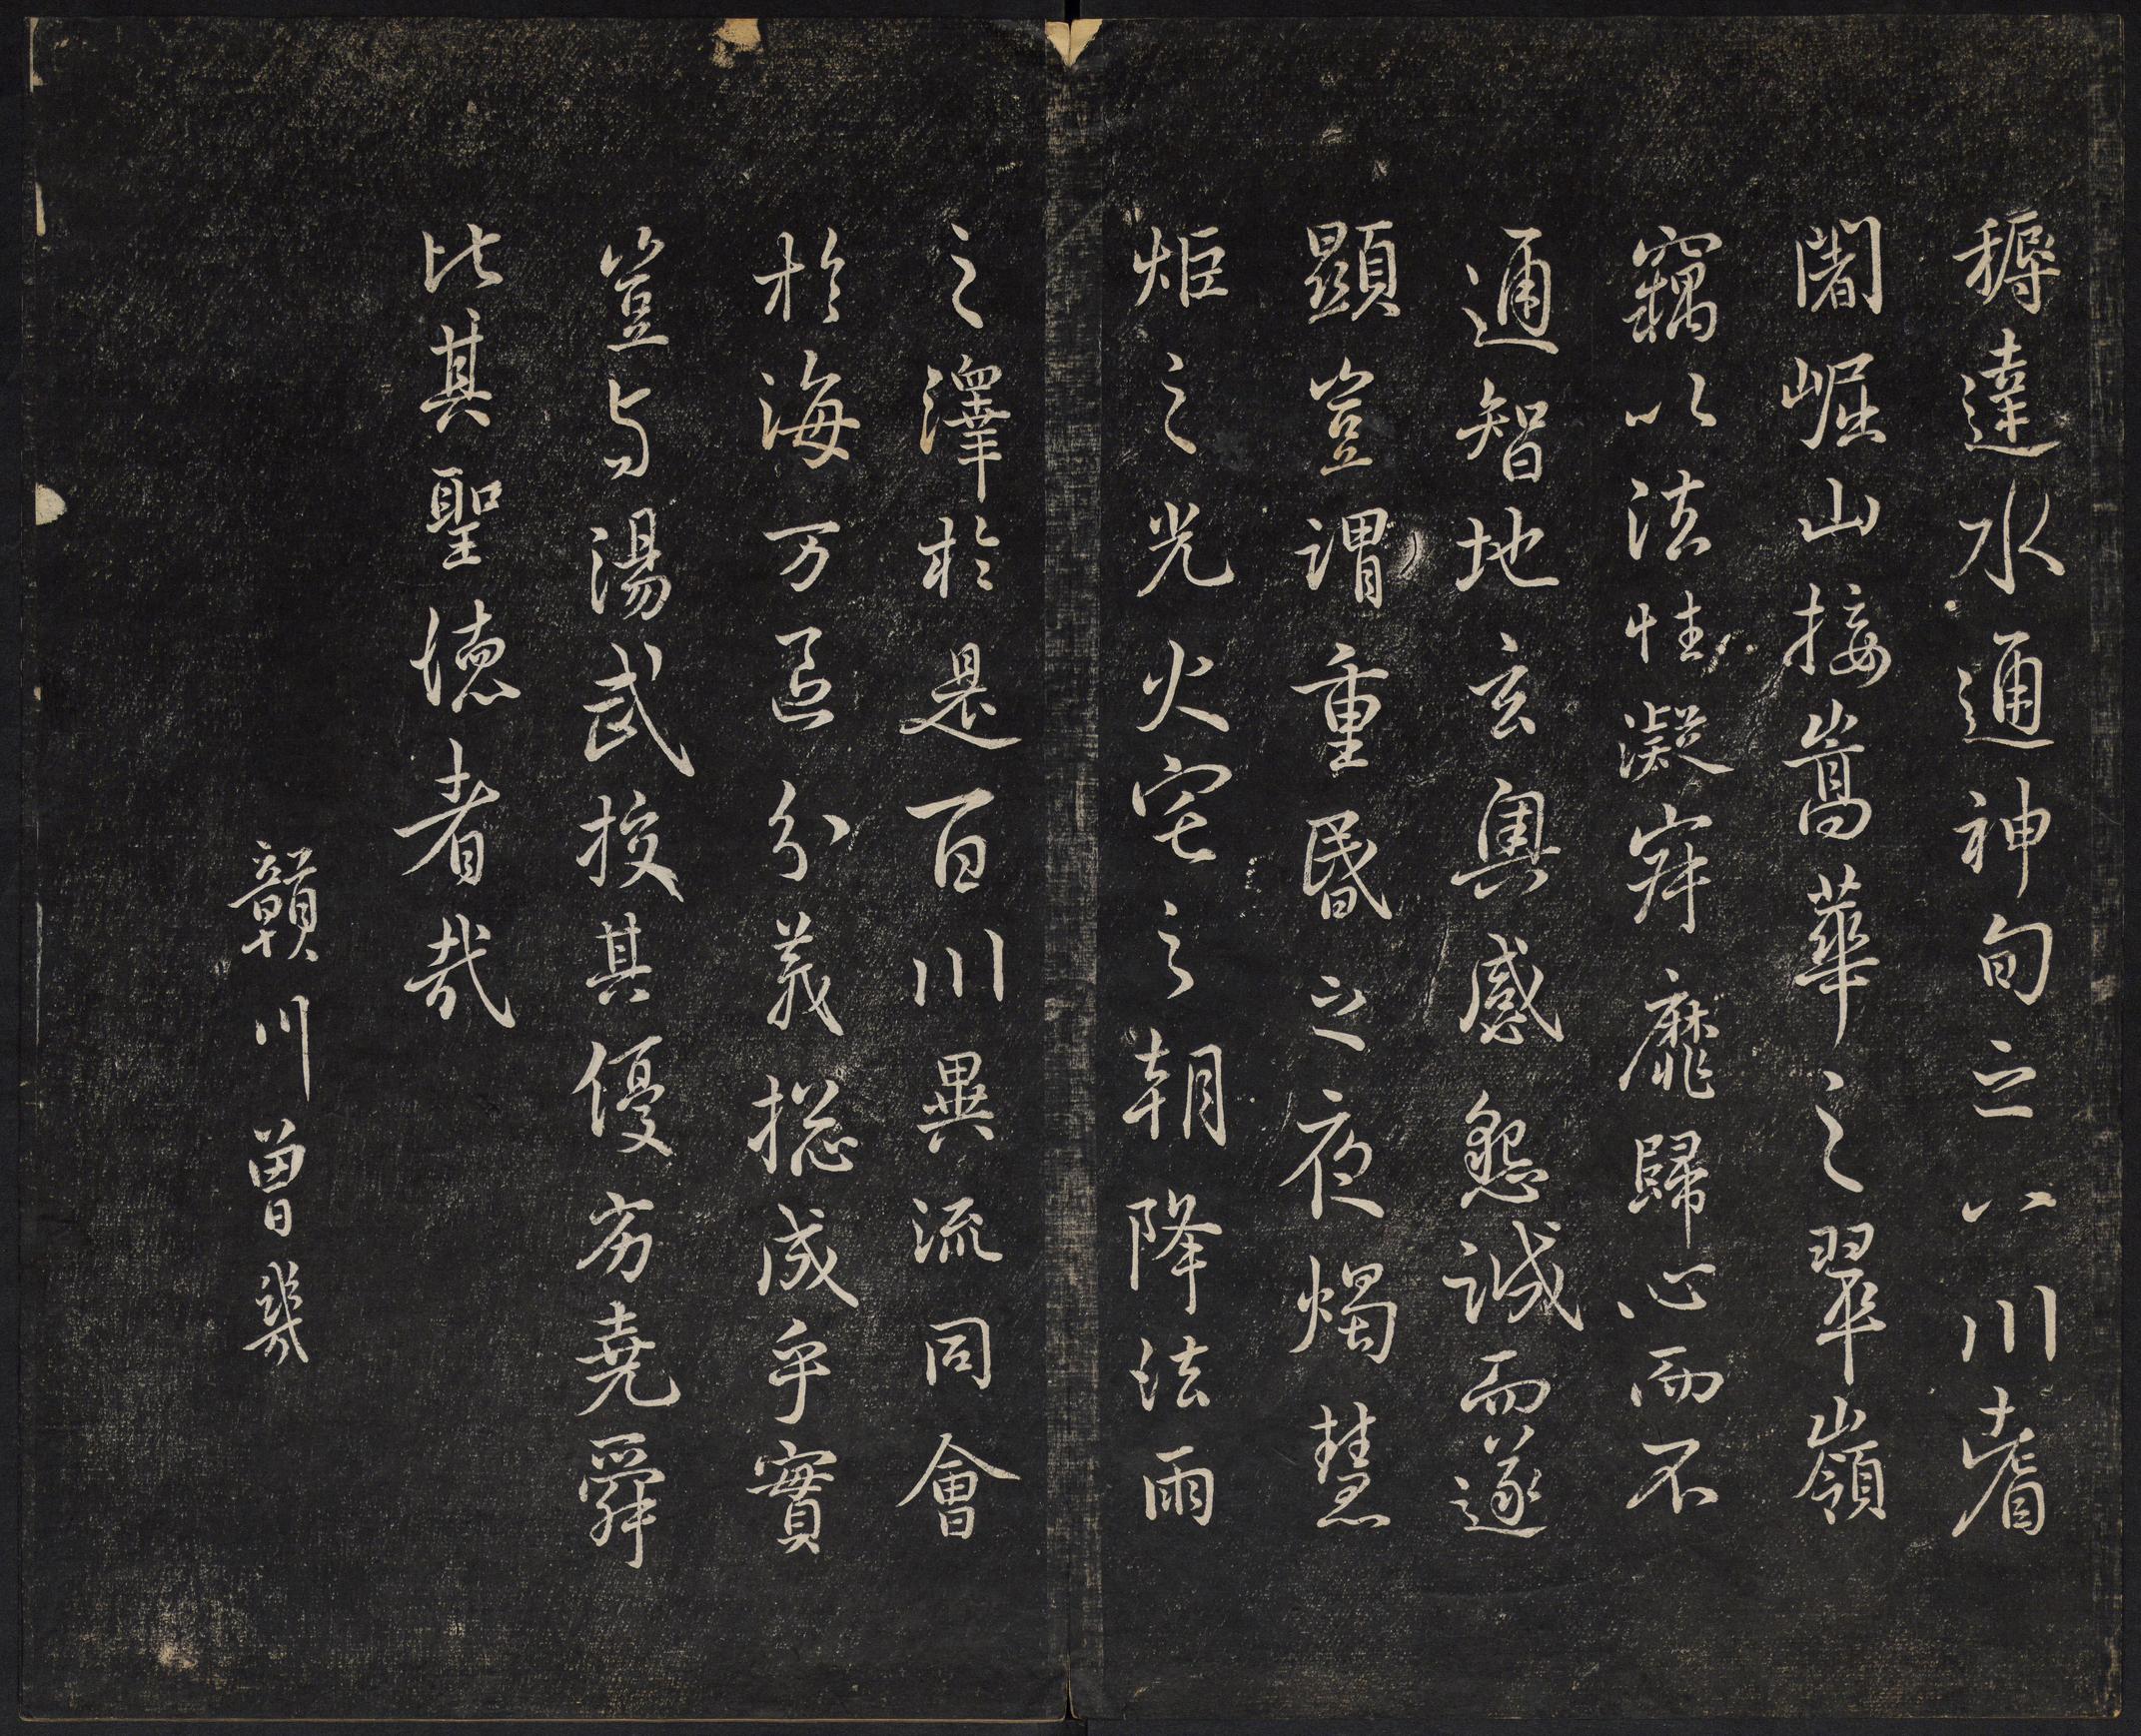 耨達水通神甸之八川耆
闍崛山接嵩華之翠嶺
竊以法性凝寂靡歸心而不
通智地玄奧感懇誠而遂
顯豈謂重昏之夜燭慧
炬之光火宅之朝降法雨
之澤於是百川異流同會
於海万區分義揔成乎實
豈与湯武挍其優劣堯舜
比其聖德者哉
贛川曾幾